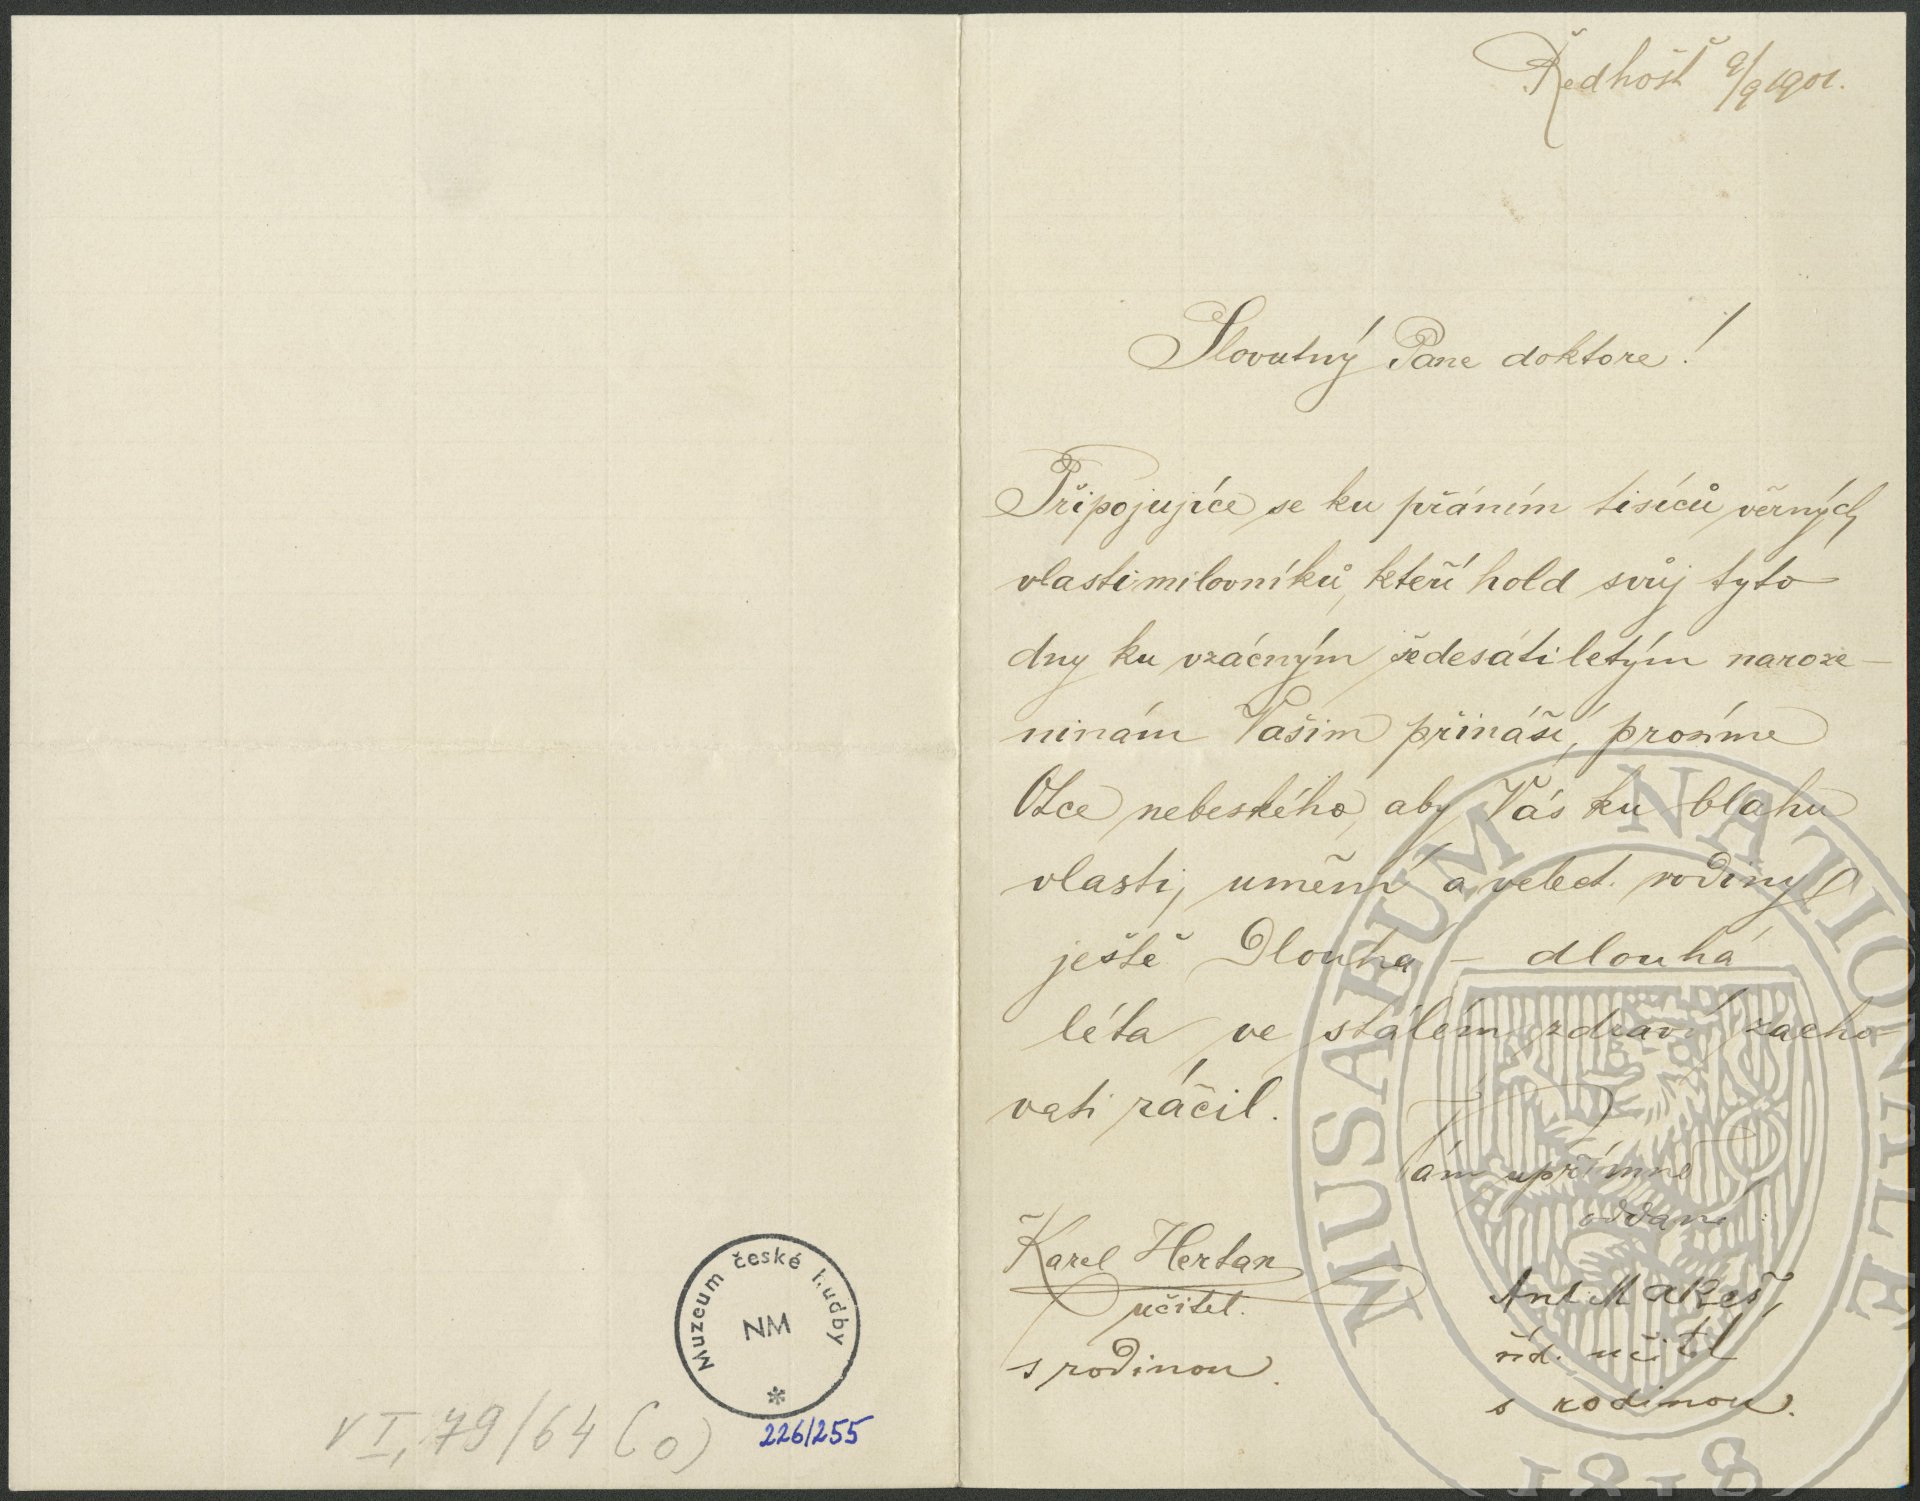 Ředhošť 9/9 1901.
Slovutný Pane doktore!
Připojujíce se ku přáním tisíců věrných
vlastimilovníků, kteří hold svůj tyto
dny ku vzácným šedesátiletým naroze-
ninám Vašim přináší, prosíme
Otce nebeského, aby Vás ku blahu
vlasti, umění a velect. rodiny
ještě Dlouhá - dlouhá
léta ve stálém zdraví zacho-
vati ráčil.
Vám upřímně
oddaní:
Karel Hertan
učitel.
s rodinou.
Ant. Makeš,
říd. učitel
s rodinou.
Muzeum české hudby
NM
*
VI, 79/64 (o)
226/255
MUSAEUM NATIONALE
1818